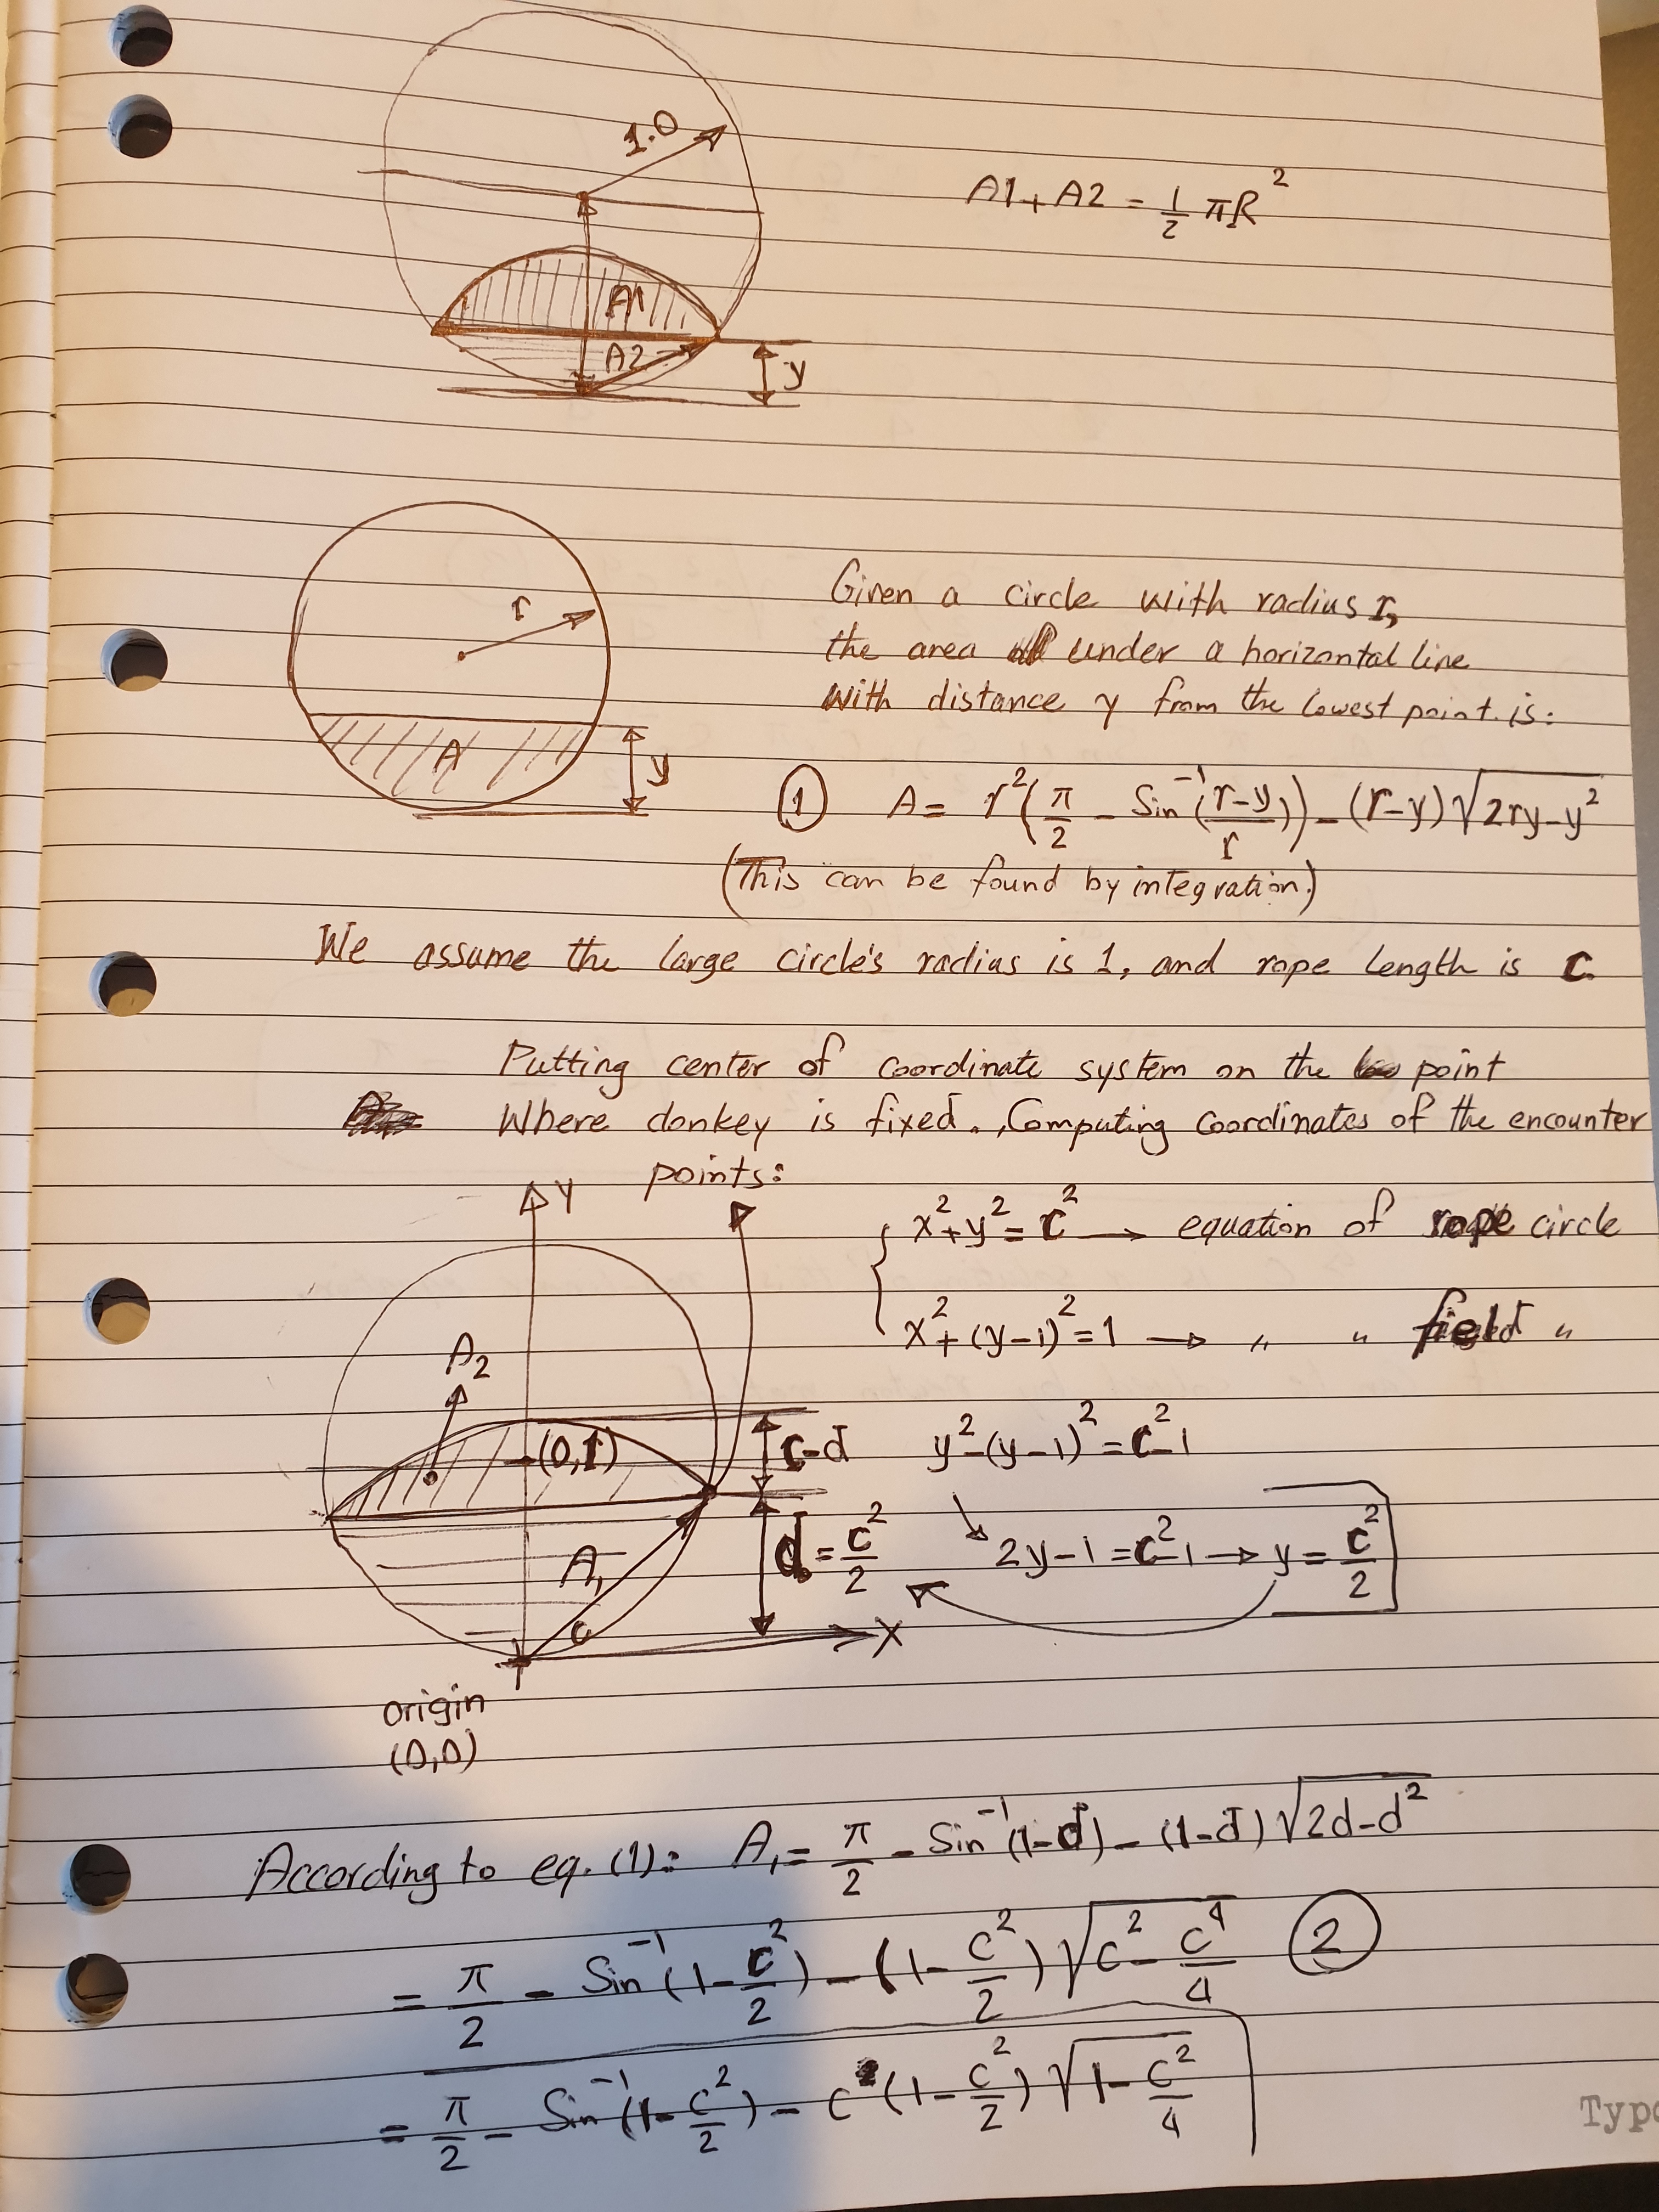 1.0
A1 + A2 = 1/2 πR²
A1
A2
y
r
Given a circle with radius r,
the area under a horizontal line
with distance y from the lowest point is:
A
y
① A = r²(π/2 - Sin⁻¹((r-y)/r)) - (r-y)√(2ry-y²)
(This can be found by integration.)
We assume the large circle's radius is 1, and rope length is c
Putting center of coordinate system on the point
Where donkey is fixed. Computing coordinates of the encounter
points:
Y
x² + y² = c² → equation of rope circle
x² + (y-1)² = 1 → " " field "
A₂
(0,1)
c-d
y² - (y-1)² = c² - 1
d = c²/2
2y - 1 = c² - 1 → y = c²/2
A₁
c
X
origin
(0,0)
According to eq. (1): A₁ = π/2 - Sin⁻¹(1-d) - (1-d)√(2d-d²)
= π/2 - Sin⁻¹(1-c²/2) - (1-c²/2)√(c²-c⁴/4) ②
= π/2 - Sin⁻¹(1-c²/2) - c(1-c²/2)√(1-c²/4)